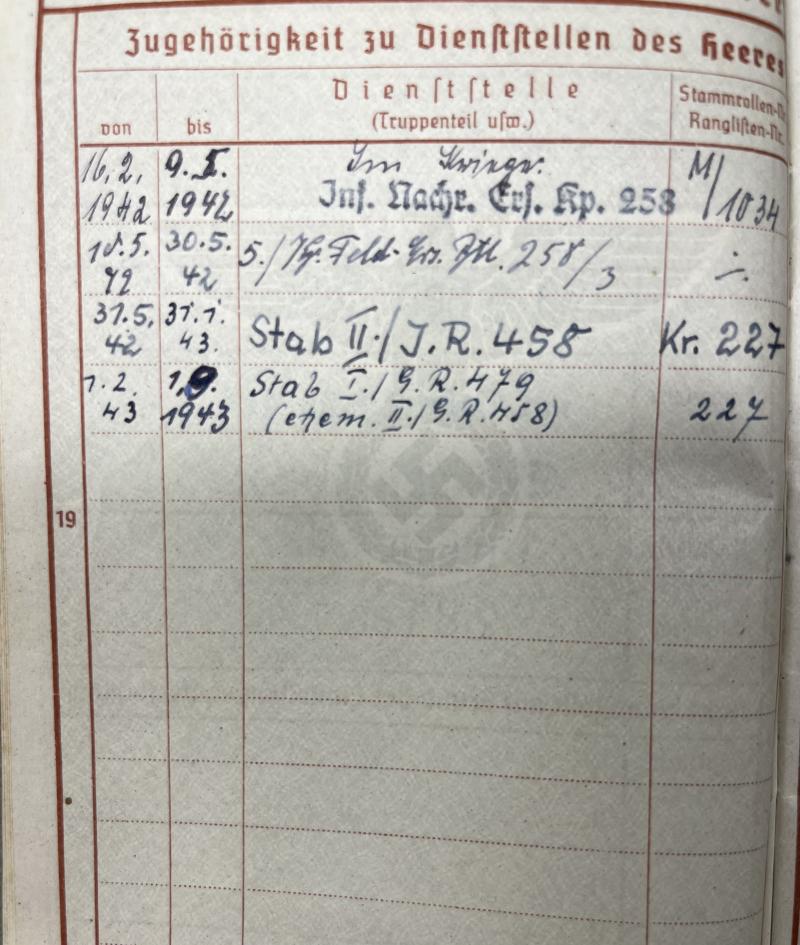 Zugehörigkeit zu Dienststellen des Heeres
von
bis
Dienststelle
(Truppenteil usw.)
Stammrollen-Nr.
Ranglisten-Nr.
16.2. 9.5. Im Kriege. M/
1942 1942 Inf. Nachr. Ers. Kp. 258 1034
18.5. 30.5. 5./ Feld-Ers. Btl. 258/3 ./.
42 42
31.5. 31.1. Stab II./J.R.458 Kr. 227
42 43.
1.2. 1.9. Stab I./G.R.479
43 1943 (ehem. II./G.R.458) 227
19